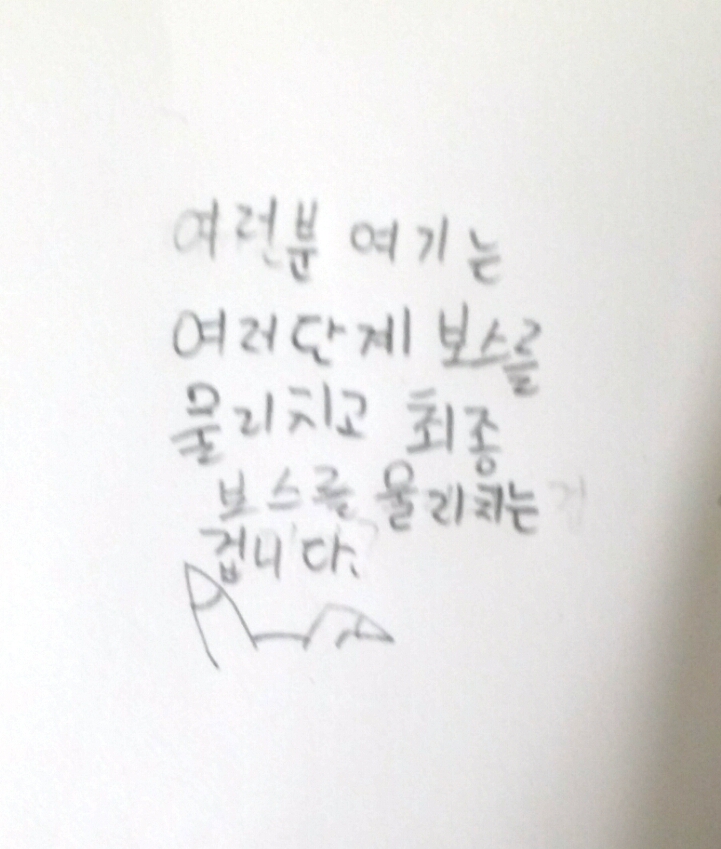 여러분 여기는
여러단계 보스를
물리치고 최종
보스를 물리치는
겁니다.